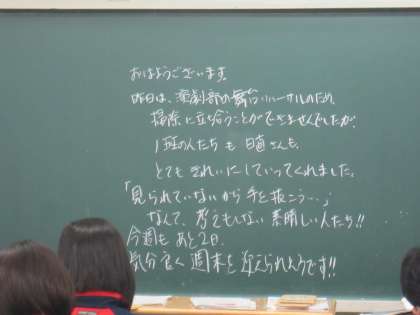 おはようございます。
昨日は、演劇部の舞台リハーサルのため、
掃除に立ち会うことができませんでしたが、
1班の人たちも日直さんも、
とてもきれいにしていってくれました。
「見られていないから手を抜こう…」
なんて、考えもしない素晴しい人たち!!
今週もあと2日。
気分良く週末を迎えられそうです!!